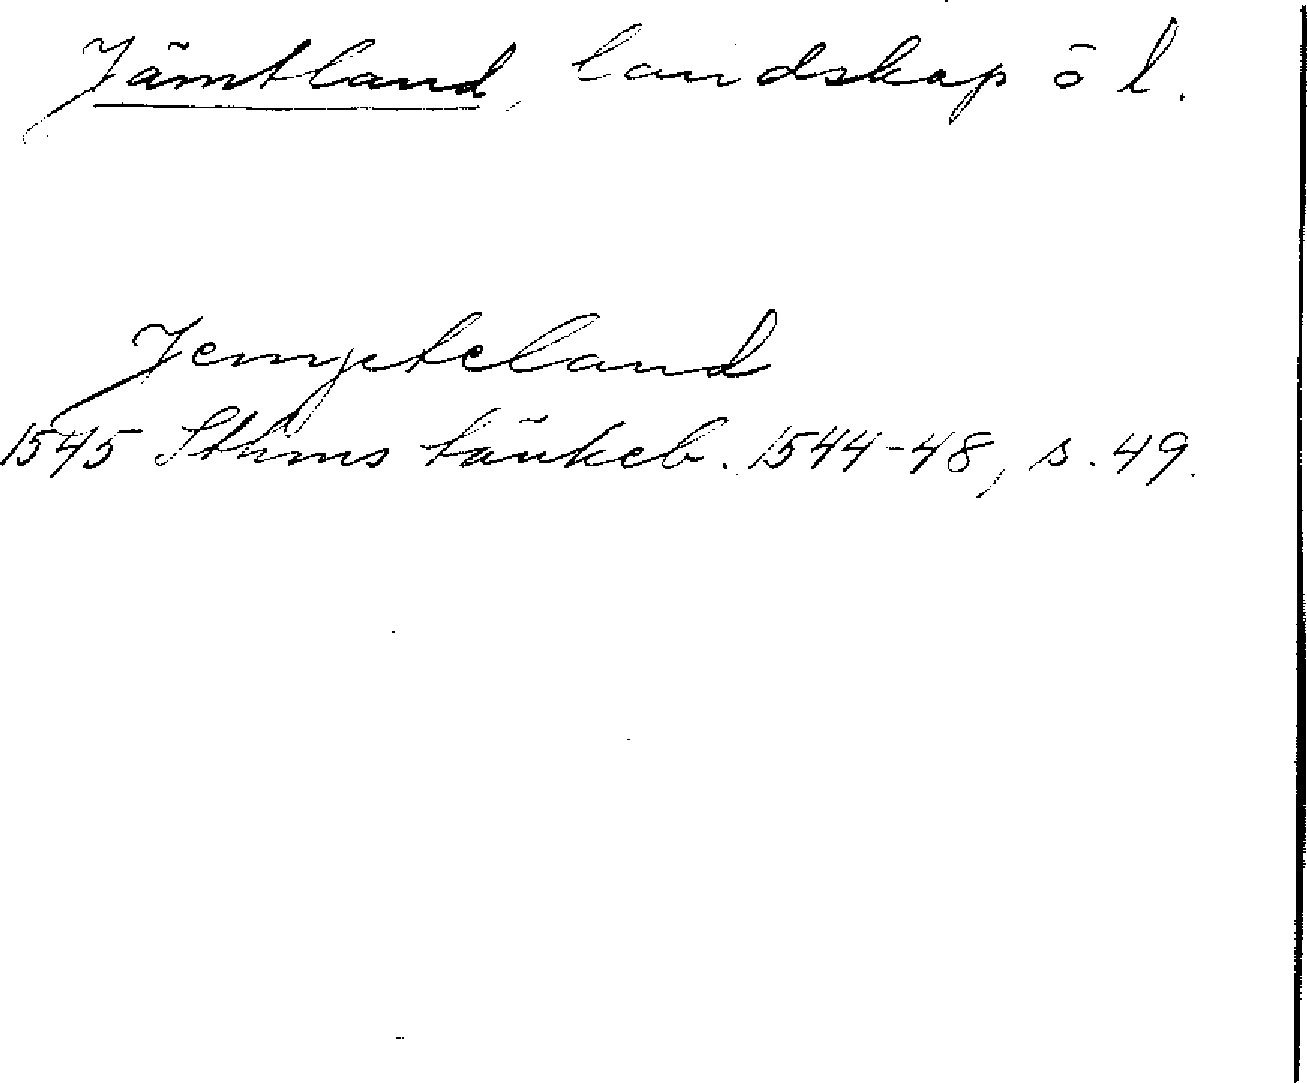 Jämtland, landskap ö l.
Jempteland
1545 Sthms tänkeb. 1544-48, s. 49.